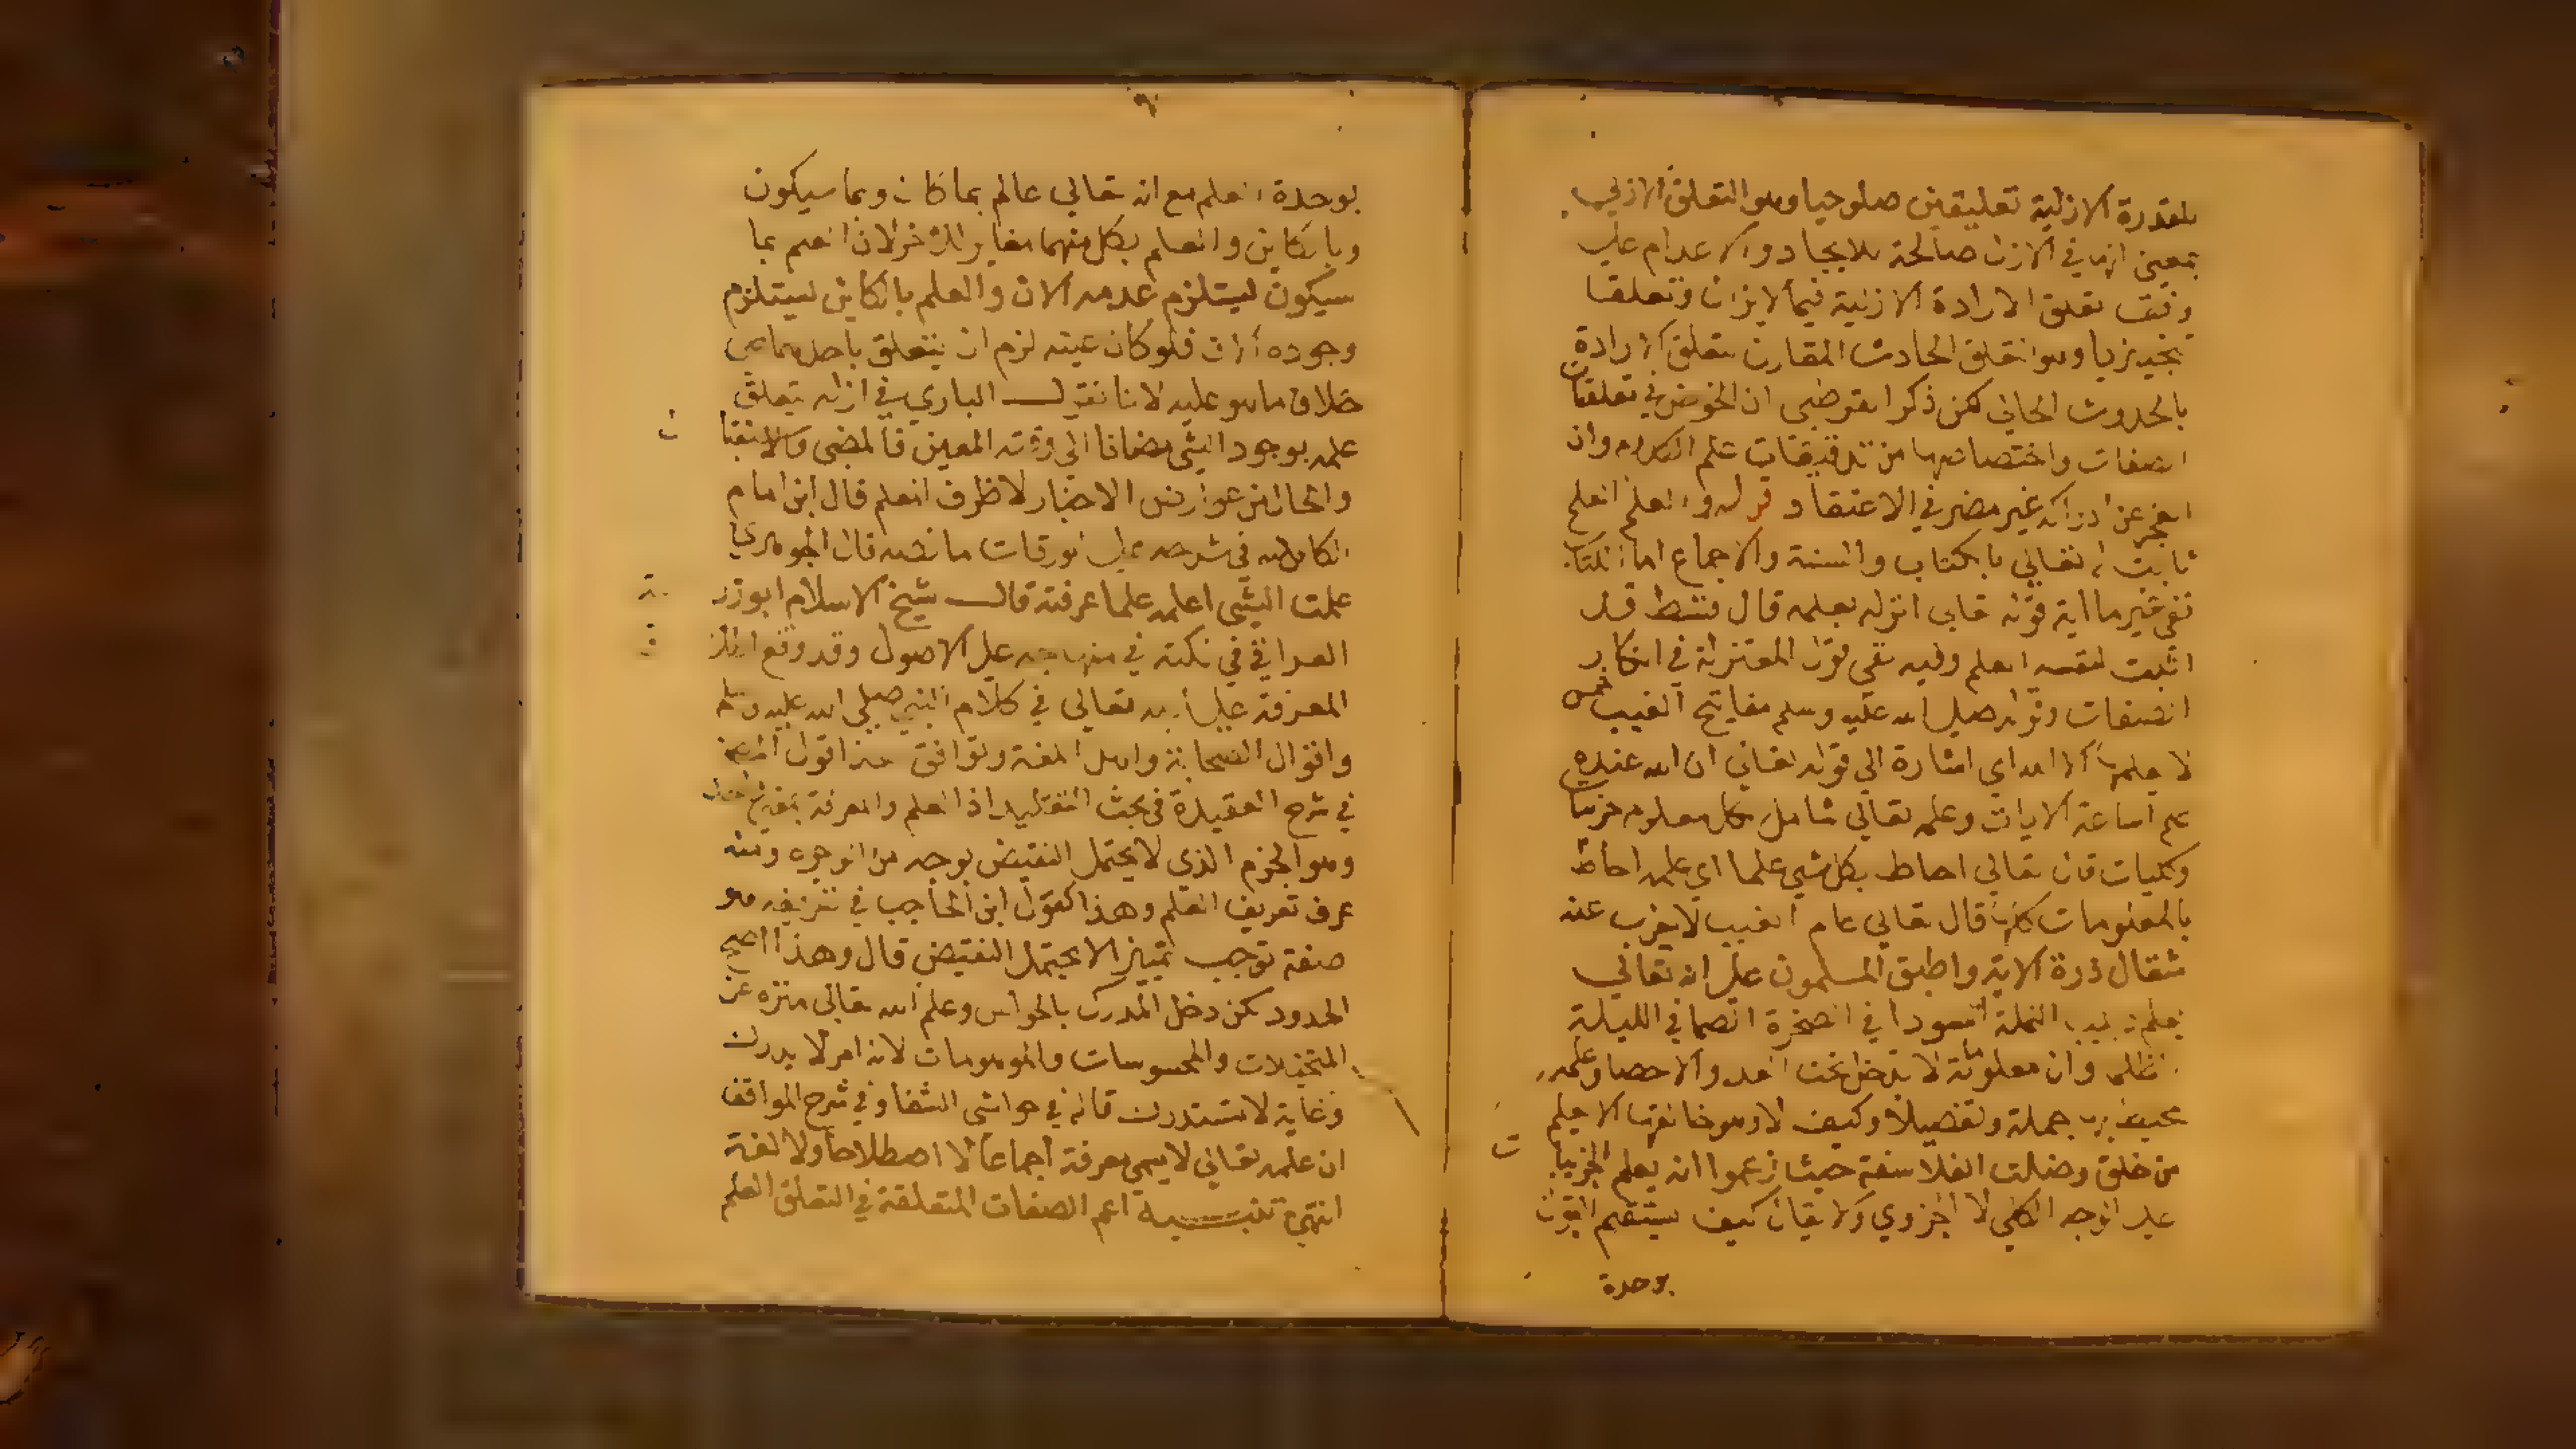 للقدرة الازلية تعليقين صلوحيا وهو التعلق الازلي
بمعنى انها في الازل صالحة للايجاد والاعدام على
وفق تعلق الارادة الازلية فيما لا يزال وتعلقا
تنجيزيا وهو التعلق الحادث المقارن لتعلق الارادة
بالحدوث الحالي لكن ذكر القرطبي ان الخوض في تعلقات
الصفات واختصاصها من تدقيقات علم الكلام وان
العجز عن ادراكه غير مضر في الاعتقاد قوله والعلم العلم
ثابت له تعالى بالكتاب والسنة والاجماع اما الكتاب
ففي غير ما اية قوله تعالى انزله بعلمه قال قد
اثبت لنفسه العلم وفيه نفي قول المعتزلة في انكار
الصفات وقوله صلى الله عليه وسلم مفاتيح الغيب خمس
لا يعلمها الا الله اي اشارة الى قوله تعالى ان الله عنده
علم الساعة الايات وعلمه تعالى شامل لكل معلوم جزئيات
وكليات قال تعالى احاط بكل شي علما اي علمه احاط
بالمعلومات كلها قال تعالى عالم الغيب لا يعزب عنه
مثقال ذرة الاية واطبق المسلمون على انه تعالى
يعلم دبيب النملة السودا في الصخرة الصما في الليلة
الظلما وان معلوماته لا تدخل تحت العد والاحصا وعلمه
محيط بها جملة وتفصيلا وكيف لا وهو خالقها الا يعلم
من خلق وضلت الفلاسفة حيث زعموا انه يعلم الجزيات
على الوجه الكلي لا الجزوي ولا يقال كيف يستقيم القول
بوحدة
بوحدة العلم مع انه تعالى عالم بما كان وبما سيكون
وبالكاين والعلم بكل منهما مغاير للاخر لان العلم بما
سيكون يستلزم عدمه الان والعلم بالكاين يستلزم
وجوده الان فلو كان عينه لزم ان يتعلق باحدهما على
خلاف ما هو عليه لانا نقول الباري في ازله يتعلق
علمه بوجود الشي مضافا الى وقته المعين فالمضي والاستقبال
والحال من عوارض الاخبار لا ظرف العلم قال ابن امام
الكاملية في شرحه على الورقات ما نصه قال الجوهري
علمت الشي اعلمه علما عرفته قال شيخ الاسلام ابو زرعة
العراقي في نكته في منهاجه على الاصول وقد وقع اطلاق
المعرفة على الله تعالى في كلام النبي صلى الله عليه وسلم
واقوال الصحابة واهل اللغة وتوافق هذا قول
في شرح العقيدة في بحث التقليد اذ العلم والمعرفة بمعنى واحد
وهو الجزم الذي لا يحتمل النقيض بوجه من الوجوه ومنه
عرف تعريف العلم وهذا كقول ابن الحاجب في تعريفه هو
صفة توجب تمييزا لا يحتمل النقيض قال وهذا اصح
الحدود لكن دخل المدرك بالحواس وعلم الله تعالى منزه عن
المتخيلات والمحسوسات والموهومات لانه امر لا يدرك
وغاية لا تستدرك قاله في حواشي الشفا وفي شرح المواقف
ان علمه تعالى لا يسمى معرفة اجماعا لا اصطلاحا ولا لغة
انتهى تنبيه اعم الصفات المتعلقة في التعلق العلم